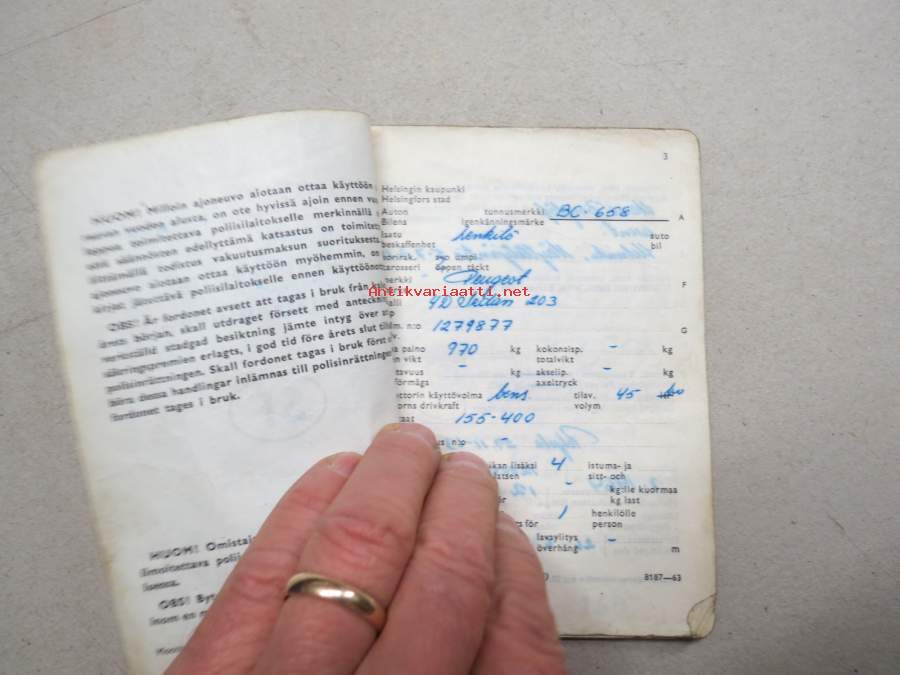 HUOM! Milloin ajoneuvo aiotaan ottaa käyttöön
vuoden alusta, on ote hyvissä ajoin ennen
toimitettava poliisilaitokselle merkinnällä
säännösten edellyttämä katsastus on toimitettu
todistus vakuutusmaksun suorituksesta
ajoneuvo aiotaan ottaa käyttöön myöhemmin, on
jätettävä poliisilaitokselle ennen käyttöönottoa
OBS! Är fordonet avsett att tagas i bruk från
årets början, skall utdraget försett med anteckning
verkställd stadgad besiktning jämte intyg över
erlagts, i god tid före årets slut till
polisinrättningen. Skall fordonet tagas i bruk först
dessa handlingar inlämnas till polisinrättningen
fordonet tages i bruk.
HUOM!
ilmoitettava
OBS!
inom en
3
Helsingin kaupunki
Helsingfors stad
Auton tunnusmerkki BC-658 A
Bilens igenkänningsmärke
laatu henkilö auto
beskaffenhet bil
umpi
karosseri öppen täckt
merkki Peugeot F
Antikvariaatti.net
203
m. n:o 1279877 G
paino 970 kg kokonaisp. - kg
vikt totalvikt
tavuus - kg akselip. - kg
förmåga axeltryck
ttorin käyttövoima bens tilav. 45
orns drivkraft volym
155-400
n:o
ikan lisäksi 4 istuma- ja
latsen - sitt- och
kg:lle kuormaa
kg last
1 henkilölle
rs för person
lavaylitys -
överhäng m
8187—63